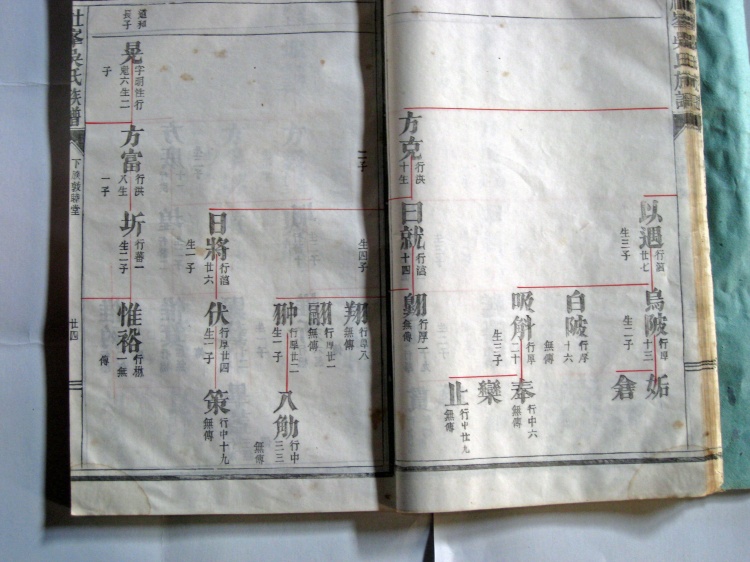 吳氏族譜
以遇
行滔
廿七
生三子
烏陂
行厚
十三
生二子
妬
倉
白陂
行厚
十六
無傳
吸斛
行厚
二十
生三子
奉
行中六
無傳
欒
止
行中廿九
無傳
方克
行洪
十生
二子
日就
行滔
十四
生四子
行厚一
無傳
翔
行厚八
無傳
翮
行厚廿一
無傳
翀
行厚廿二
生一子
八勋
行中
三三
無傳
日將
行滔
廿六
生一子
伏
行厚廿四
生一子
策
行中十九
無傳
道和
長子
晃
字明性行
魁六生二
子
方富
行洪
八生
一子
圻
行蕃一
生二子
惟裕
行桓
一無
傳
杜峯吳氏族譜
下渡敦睦堂
廿四